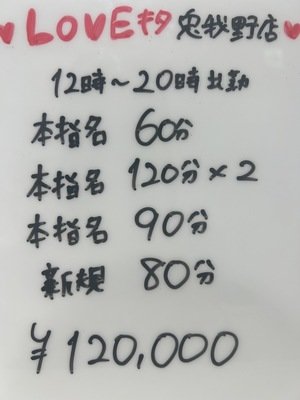 ♥LOVEキタ 兎我野店♥
12時～20時出勤
本指名 60分
本指名 120分×2
本指名 90分
新規 80分
¥120,000